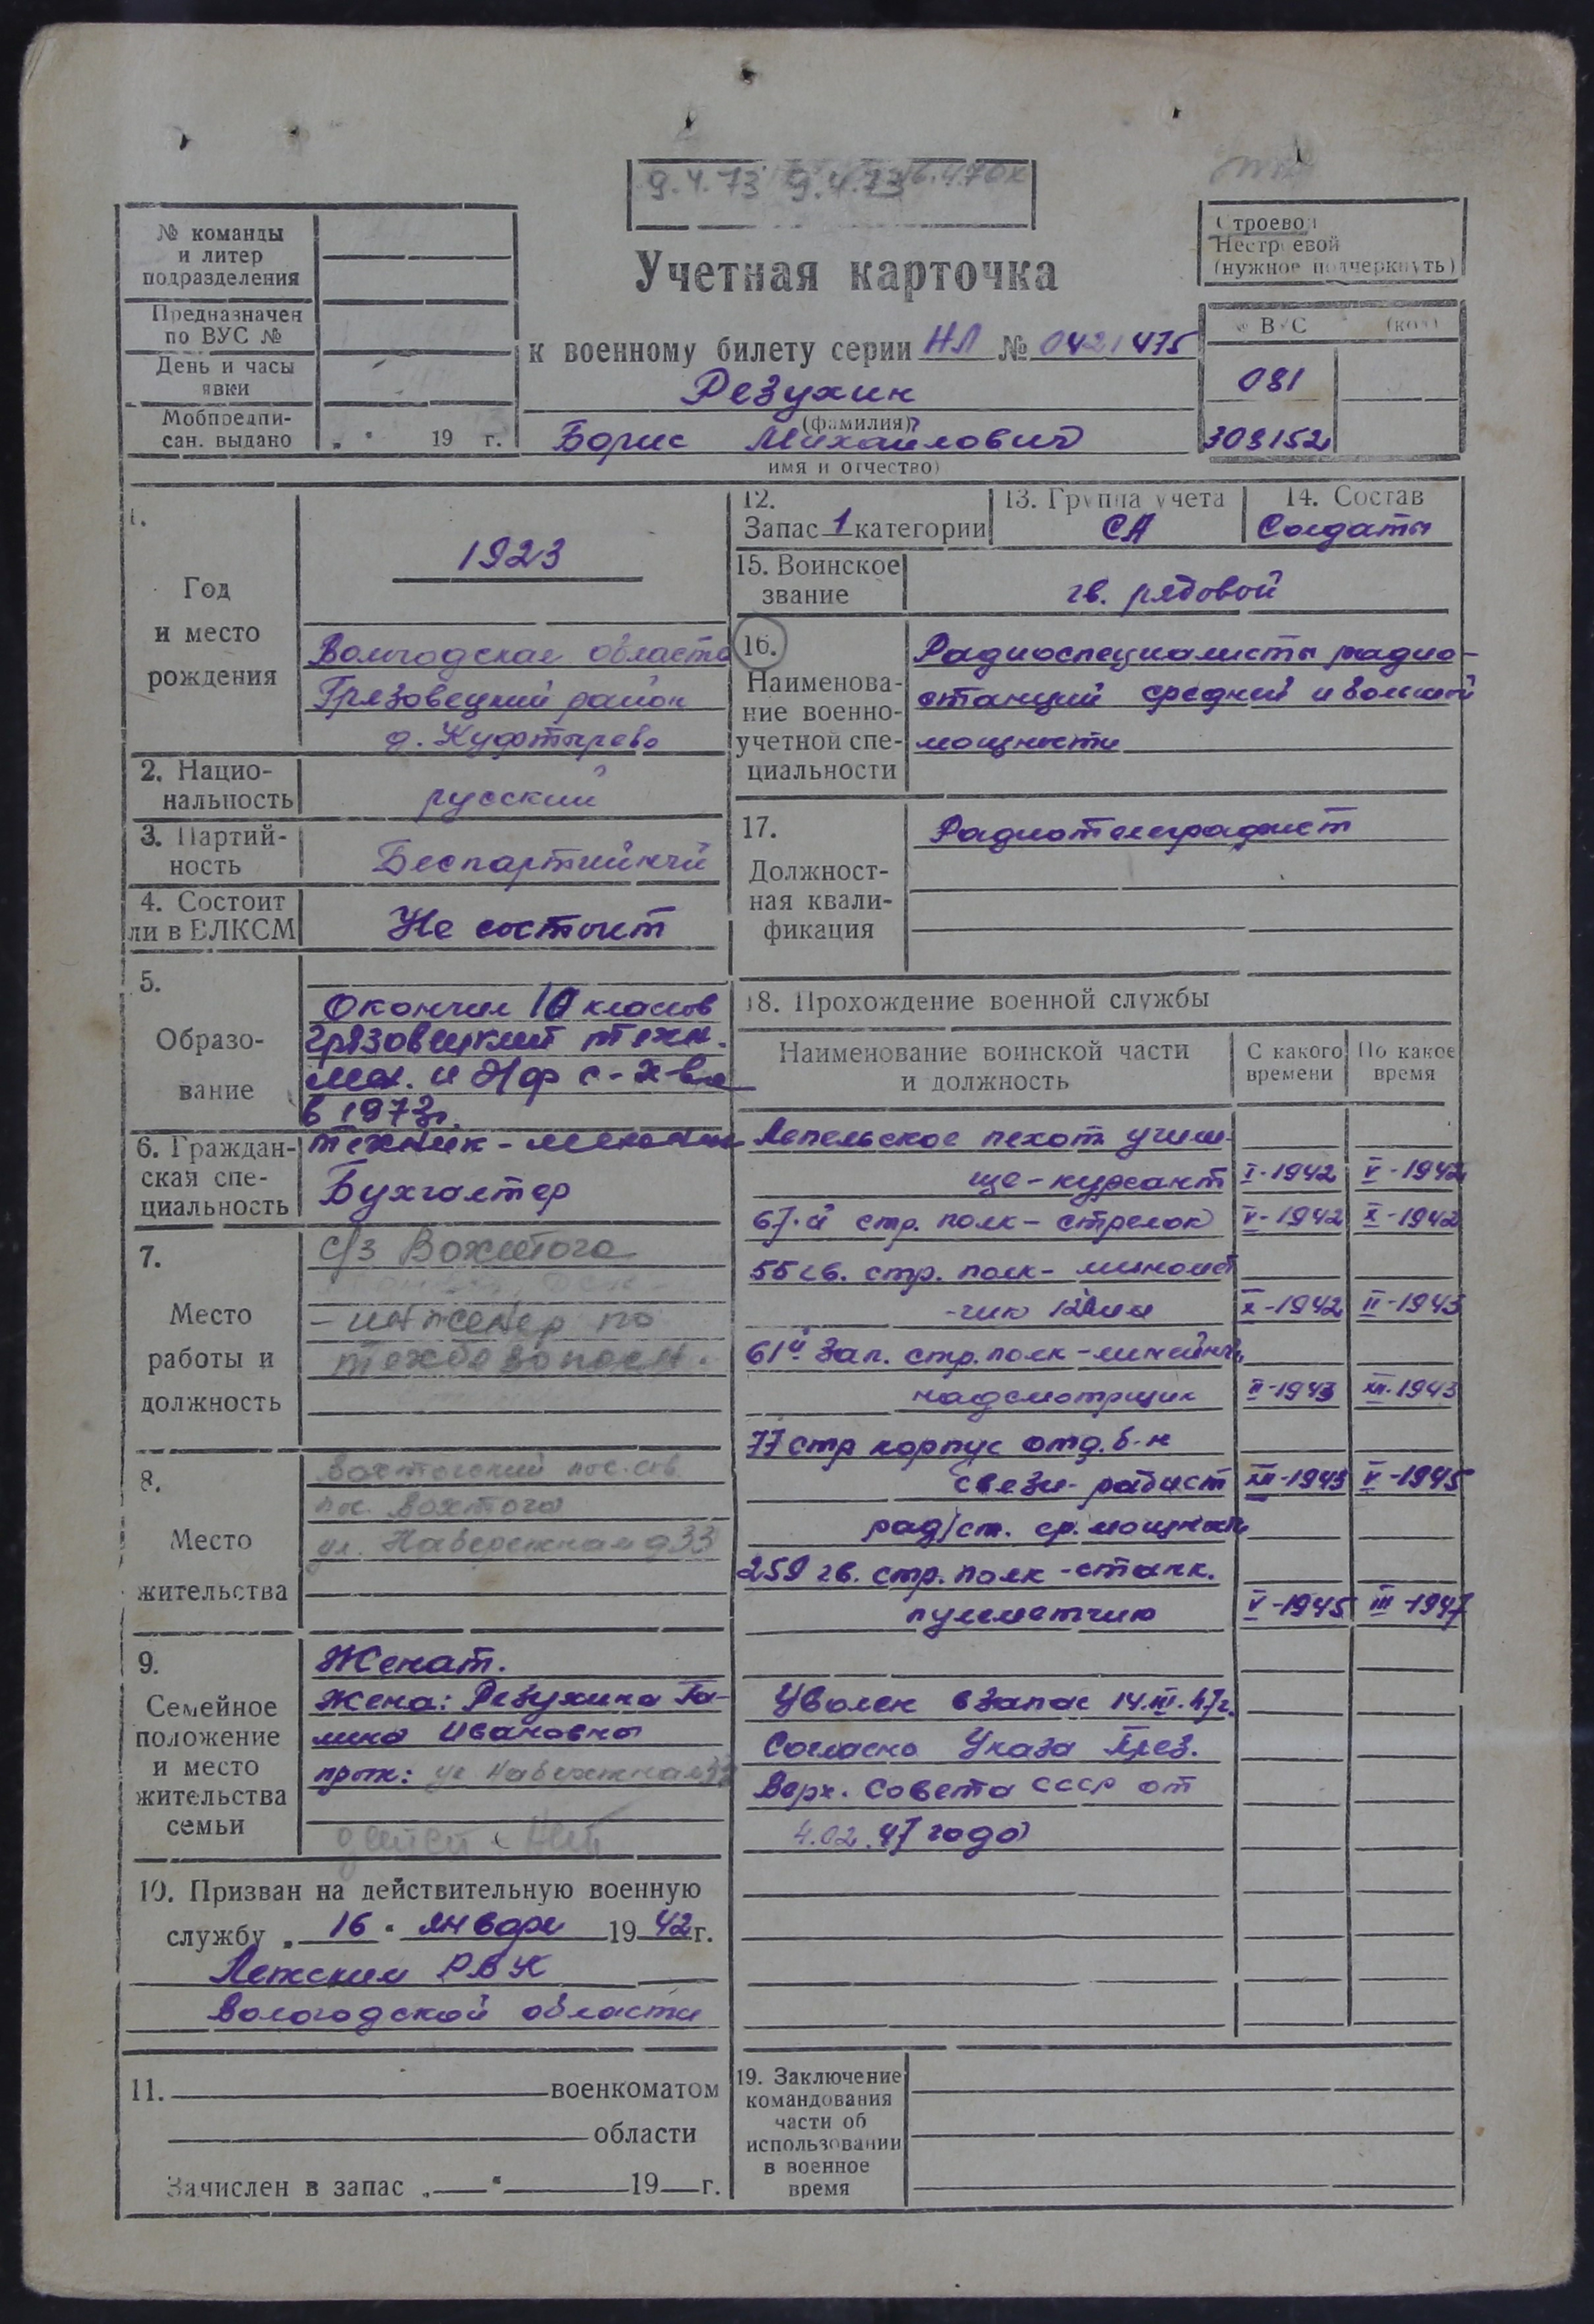 9.4.73 9.4.73
№ команды
и литер
подразделения
Предназначен
по ВУС №
День и часы
явки
Мобпредпи-
сан. выдано „ “ 19 г.
Учетная карточка
к военному билету серии НЛ № 0421475
Резухин
(фамилия)
Борис Михайлович
имя и отчество)
Строевой
Нестроевой
(нужное подчеркнуть)
№ ВУС (код)
081
309152
1.
Год
и место
рождения
1923
Вологодская область
Грязовецкий район
д. Куфтырево
2. Нацио-
нальность
русский
3. Партий-
ность
Беспартийный
4. Состоит
ли в ВЛКСМ
Не состоит
5.
Образо-
вание
Окончил 10 классов
Грязовецкий техн.
мех. и эл с-х-ва
в 1973г.
6. Граждан-
ская спе-
циальность
техник-механик
Бухгалтер
7.
Место
работы и
должность
с/з Вохтога
- инженер по
техбезопасн.
8.
Место
жительства
Вохтогский пос.сов
пос. Вохтога
ул. Набережная д33
9.
Семейное
положение
и место
жительства
семьи
Женат.
Жена: Резухина Га-
лина Ивановна
прож: ул Набережная 33
детей нет
10. Призван на действительную военную
службу „ 16 “ января 1942 г.
Лежским РВК
Вологодской области
11. военкоматом
области
Зачислен в запас „ “ 19 г.
12.
Запас 1 категории
13. Группа учета
СА
14. Состав
Солдаты
15. Воинское
звание
гв. рядовой
16.
Наименова-
ние военно-
учетной спе-
циальности
Радиоспециалисты радио-
станций средней и большой
мощности
17.
Должност-
ная квали-
фикация
Радиотелеграфист
18. Прохождение военной службы
Наименование воинской части
и должность
С какого
времени
По какое
время
Лепельское пехот. учили-
ще-курсант I-1942 V-1942
67-й стр. полк - стрелок V-1942 X-1942
55 гв. стр. полк - миномет
-чик X-1942 II-1943
61й зап. стр. полк - линейный
надсмотрщик II-1943 XII-1943
77 стр корпус отд. б-н
связи-радист XII-1943 V-1945
рад/ст. ср. мощности
259 гв. стр. полк - станк.
пулеметчик V-1945 III-1947
Уволен в запас 14.III.47г.
Согласно Указа През.
Верх. Совета СССР от
4.02.47 года
19. Заключение
командования
части об
использовании
в военное
время